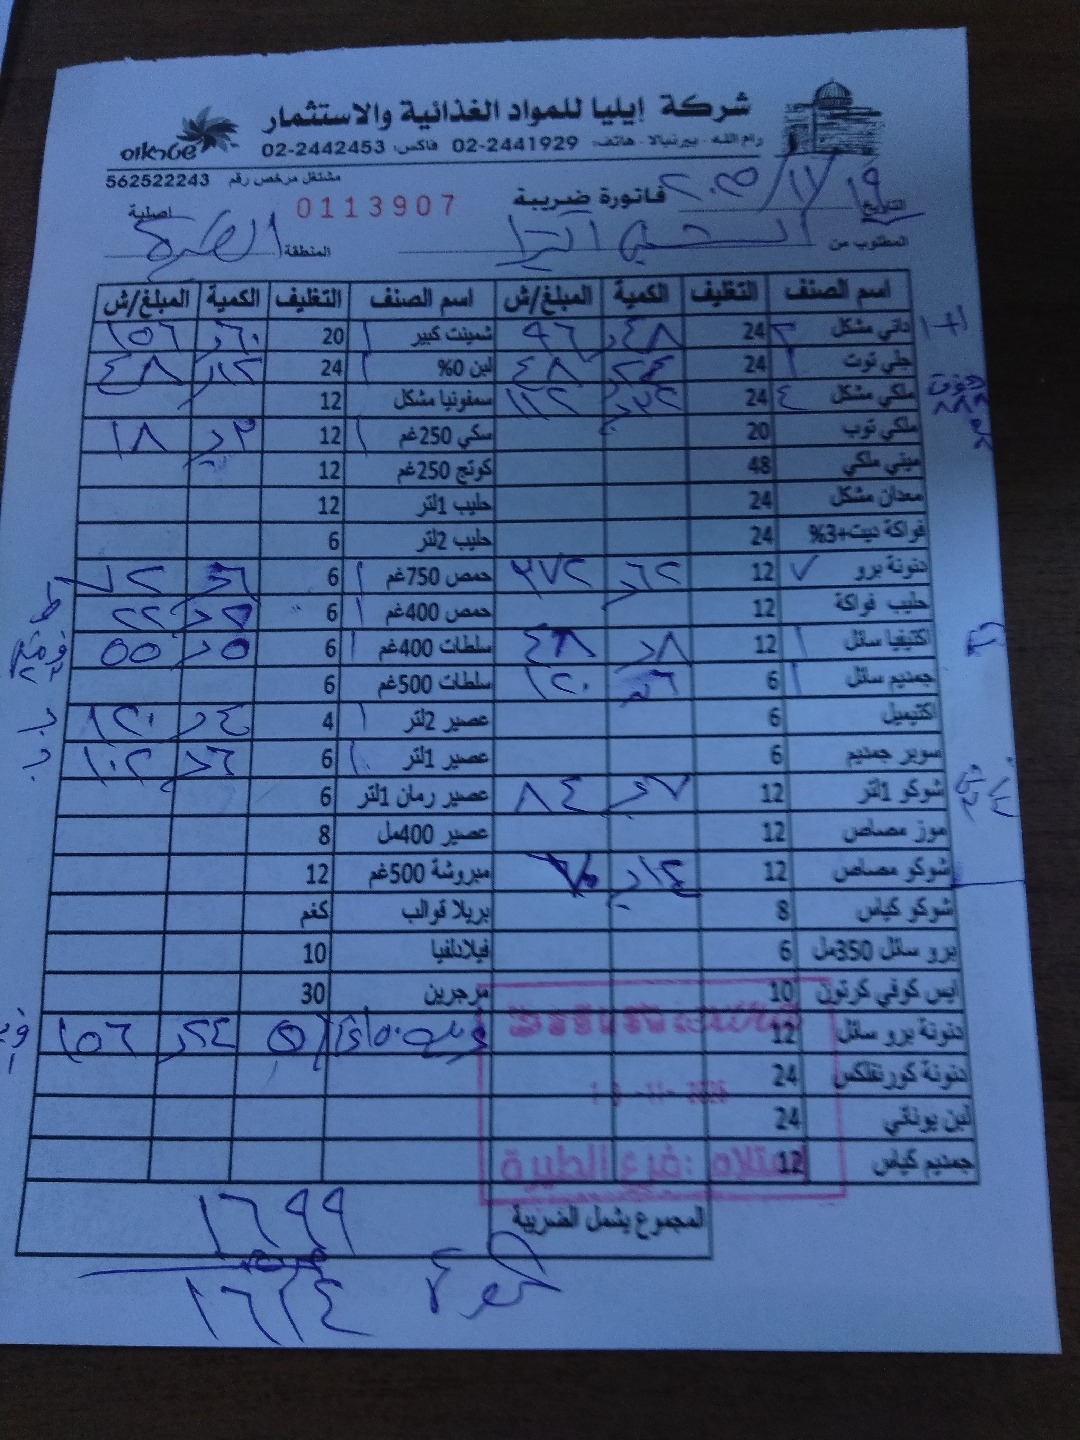 شركة إيليا للمواد الغذائية والاستثمار
رام الله - بيرنبالا - هاتف: 02-2441929 فاكس: 02-2442453
مشتغل مرخص رقم 562522243
التاريخ ١٩/١١/٢٠٢٥ فاتورة ضريبة 0113907 اصلية
المطلوب من المنطقة الطيرة
اسم الصنف التغليف الكمية المبلغ/ش اسم الصنف التغليف الكمية المبلغ/ش
داني مشكل ٢ 24 ٤٨ ٩٦ شمينت كبير ١ 20 ٦٠ ١٥٦
جلي توت ١ 24 ٢٤ ٤٨ لبن 0% ١ 24 ١٢ ٤٨
ملكي مشكل ٤ 24 ١١٢ سمفونيا مشكل 12
ملكي توب 20 سكي 250غم ١ 12 ٣ ١٨
ميني ملكي 48 كوتج 250غم 12
معدان مشكل 24 حليب 1لتر 12
فواكة ديت+3% 24 حليب 2لتر 6
دنونة برو ٧ 12 ٦٢ ٣٧٢ حمص 750غم ١ 6 ٦ ٧٢
حليب فواكة 12 حمص 400غم ١ 6 ٢٢
اكتيفيا سائل ١ 12 ٨ ٤٨ سلطات 400غم ١ 6 ٥ ٥٥
جمديم سائل ١ 6 ٦ ١٢٠ سلطات 500غم 6
اكتيميل 6 عصير 2لتر ١ 4 ٤ ١٢٠
سوبر جمديم 6 عصير 1لتر ١ 6 ٦ ١٠٢
شوكو 1لتر 12 ٧ ٨٤ عصير رمان 1لتر 6
موز مصاص 12 عصير 400مل 8
شوكو مصاص 12 ١٤ ٧٠ مبروشة 500غم 12
شوكو كياس 8 بريلا قوالب كغم
برو سائل 350مل 6 فيلادلفيا 10
ايس كوفي كرتون 10 مرجرين 30
دنونة برو سائل 12 ٢٤ ١٥٦
دنونة كورنفلكس 24
لبن يوناني 24
جمديم كياس 12
استلام: فرع الطيرة
المجموع يشمل الضريبة ١٦٩٩
١٦١٤